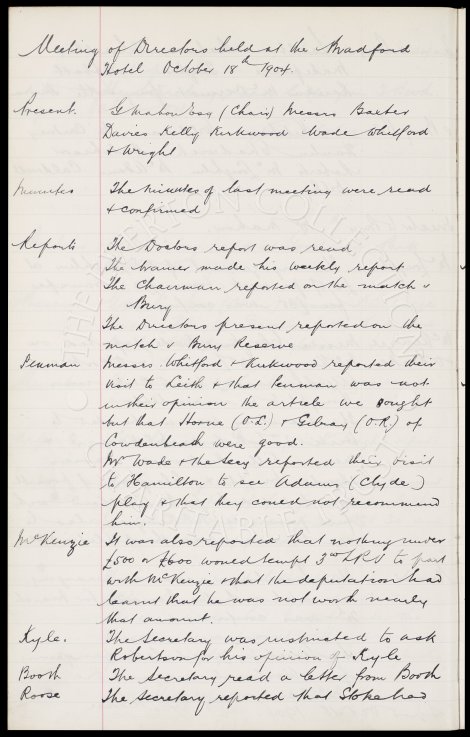 Meeting of Directors held at the Bradford
Hotel October 18th 1904.
Present. G Mahon Esq (Chair) Messrs Baxter
Davies Kelly Kirkwood Wade Whitford
& Wright
Minutes The Minutes of last meeting were read
& confirmed
Reports The Doctors report was read
The Trainer made his weekly report
The Chairman reported on the match v
Bury
The Directors present reported on the
match v Bury Reserve
Penman Messrs Whitford & Kirkwood reported their
visit to Leith & that Penman was not
in their opinion the article we sought
but that Horne (O.L.) & Gilray (O.R.) of
Cowdenbeath were good.
Mr Wade & the Secy reported their visit
to Hamilton to see Adams (Clyde)
play & that they could not recommend
him.
McKenzie It was also reported that nothing under
£500 or £600 would tempt 3rd L.R.V. to part
with McKenzie & that the deputation had
learnt that he was not worth nearly
that amount.
Kyle. The Secretary was instructed to ask
Robertson for his opinion of Kyle
Booth The Secretary read a letter from Booth
Roose The Secretary reported that Stoke had
THE EVERTON COLLECTION